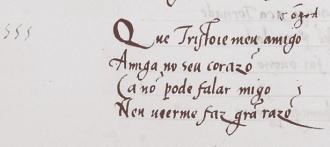 Que Tristoie meu amigo
Amiga no seu corazõ
Ca nõ pode falar migo
Nen ueerme faz grã razõ